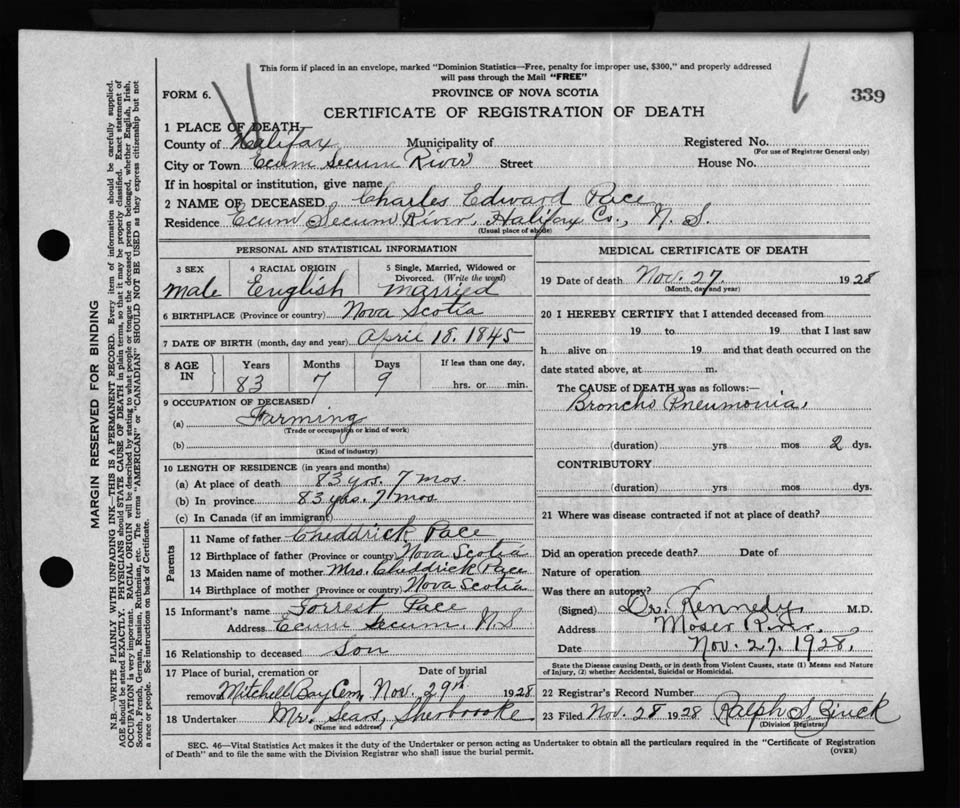 This form if placed in an envelope, marked "Dominion Statistics—Free, penalty for improper use, $300," and properly addressed
will pass through the Mail "FREE"
FORM 6.
PROVINCE OF NOVA SCOTIA
339
CERTIFICATE OF REGISTRATION OF DEATH
1 PLACE OF DEATH
County of Halifax Municipality of Registered No.
(For use of Registrar General only)
City or Town Ecum Secum River Street House No.
If in hospital or institution, give name
2 NAME OF DECEASED Charles Edward Pace
Residence Ecum Secum River, Halifax Co., N. S.
(Usual place of abode)
PERSONAL AND STATISTICAL INFORMATION
3 SEX 4 RACIAL ORIGIN 5 Single, Married, Widowed or
Divorced. (Write the word)
Male English Married
6 BIRTHPLACE (Province or country) Nova Scotia
7 DATE OF BIRTH (month, day and year) April 18. 1845
8 AGE IN Years Months Days If less than one day,
83 7 9 hrs. or min.
9 OCCUPATION OF DECEASED
(a) Farming
(Trade or occupation or kind of work)
(b)
(Kind of industry)
10 LENGTH OF RESIDENCE (in years and months)
(a) At place of death 83 yrs. 7 mos.
(b) In province 83 yrs. 7 mos.
(c) In Canada (if an immigrant)
Parents
11 Name of father Cheddrick Pace
12 Birthplace of father (Province or country) Nova Scotia
13 Maiden name of mother Mrs. Cheddrick Pace
14 Birthplace of mother (Province or country) Nova Scotia
15 Informant's name Forrest Pace
Address Ecum Secum, N S
16 Relationship to deceased Son
17 Place of burial, cremation or Date of burial
removal Mitchell Bay Cem. Nov. 29th. 1928
18 Undertaker Mr. Sears, Sherbrooke
(Name and address)
MEDICAL CERTIFICATE OF DEATH
19 Date of death Nov. 27. 1928
(Month, day and year)
20 I HEREBY CERTIFY that I attended deceased from
19 to 19 that I last saw
h alive on 19 and that death occurred on the
date stated above, at m.
The CAUSE of DEATH was as follows:—
Broncho Pneumonia.
(duration) yrs mos 2 dys.
CONTRIBUTORY
(duration) yrs mos dys.
21 Where was disease contracted if not at place of death?
Did an operation precede death? Date of
Nature of operation
Was there an autopsy?
(Signed) Dr. Kennedy. M.D.
Address Moser River.
Date Nov. 27. 1928.
State the Disease causing Death, or in death from Violent Causes, state (1) Means and Nature
of Injury, (2) whether Accidental, Suicidal or Homicidal.
22 Registrar's Record Number
23 Filed Nov. 28 1928 Ralph S.
(Division Registrar)
SEC. 46—Vital Statistics Act makes it the duty of the Undertaker or person acting as Undertaker to obtain all the particulars required in the "Certificate of Registration
of Death" and to file the same with the Division Registrar who shall issue the burial permit.
(OVER)
MARGIN RESERVED FOR BINDING
N.B.—WRITE PLAINLY WITH UNFADING INK—THIS IS A PERMANENT RECORD. Every item of information should be carefully supplied.
AGE should be stated EXACTLY. PHYSICIANS should STATE CAUSE OF DEATH in plain terms, so that it may be properly classified. Exact statement of
OCCUPATION is very important. RACIAL ORIGIN will be described by stating to what people or tongue the deceased person belonged, whether English, Irish,
Scotch, French, German, Russian, Ruthenian, etc. The terms "AMERICAN" or "CANADIAN" SHOULD NOT BE USED as they express citizenship but not
a race or people. See instructions on back of Certificate.